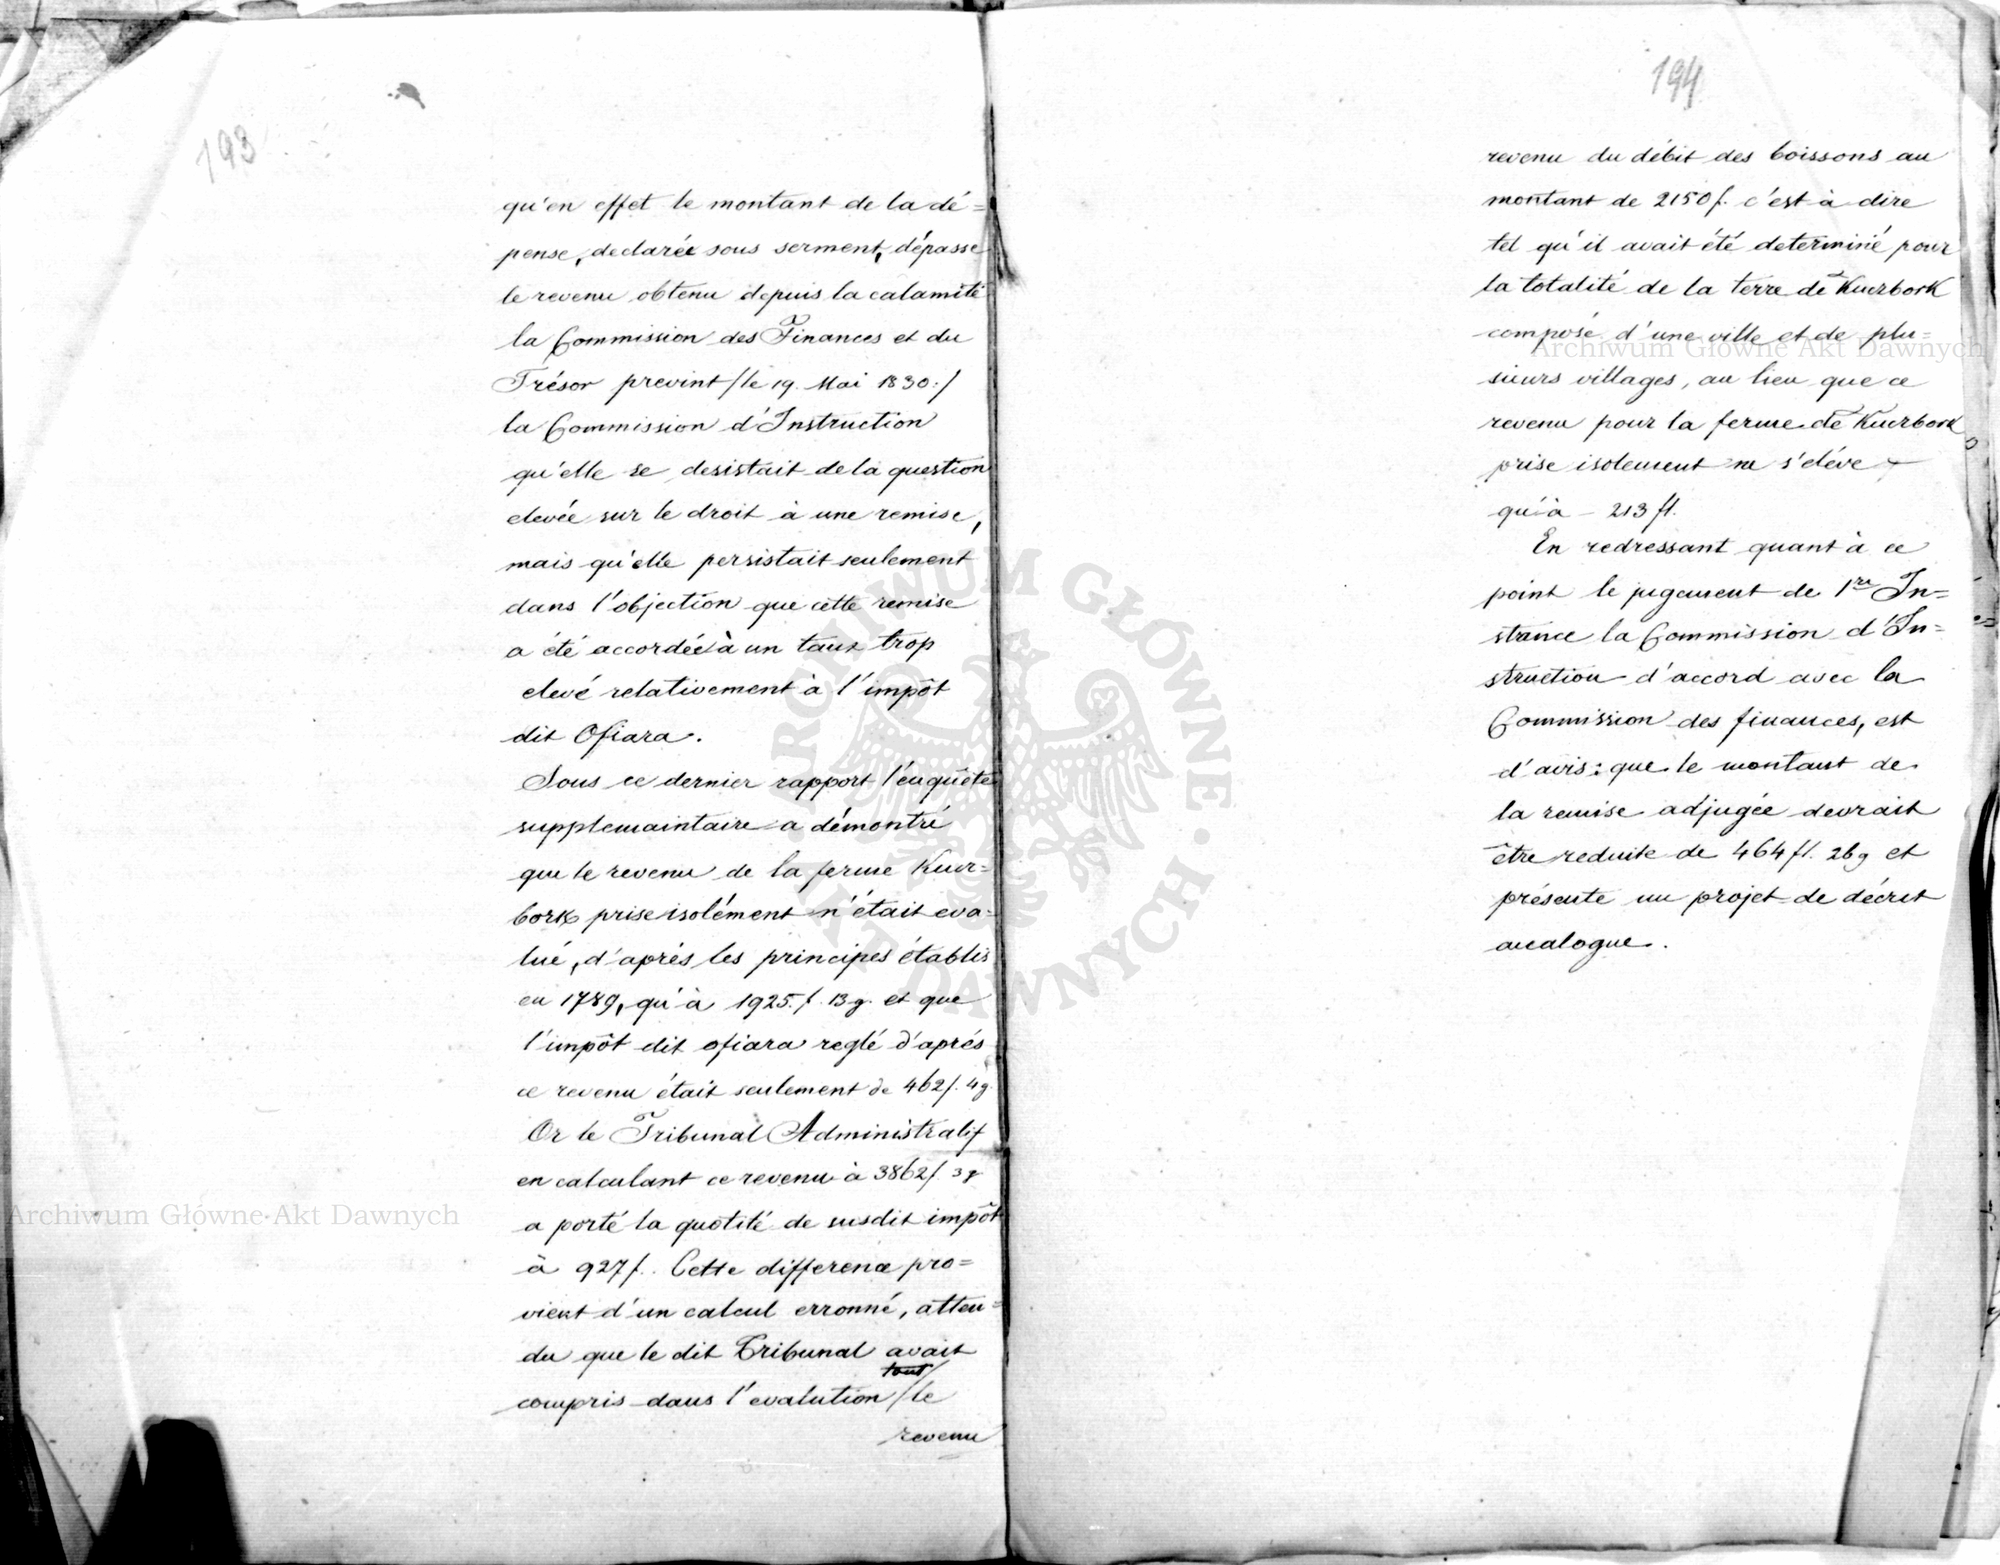 193
qu'en effet le montant de la dé=
pense, declarée sous serment, dépasse
le revenu obtenu depuis la calamité
la Commission des Finances et du
Trésor prevint /le 19. Mai 1830:/
la Commission d'Instruction
qu'elle se desistait de la question
elevée sur le droit à une remise,
mais qu'elle persistait seulement
dans l'objection que cette remise
a été accordée à un taux trop
elevé relativement à l'impôt
dit Ofiara.
Sous ce dernier rapport l'enquête
supplemaintaire a démontré
que le revenu de la ferme Kurz=
bork prise isolément n'était eva=
lué, d'aprés les principes établis
en 1789, qu'à 1925.f. 13g. et que
l'impôt dit ofiara reglé d'aprés
ce revenu était seulement de 462f. 4g.
Or le Tribunal Administratif
en calculant ce revenu à 3862f. 3g
a porté la quotité de susdit impôt
à 927f. Cette difference pro=
vient d'un calcul erronné, atten=
du que le dit Tribunal avait
tout
compris dans l'evalution /le
revenu
194
revenu du débit des boissons au
montant de 2150f. c'est à dire
tel qu'il avait été determiné pour
la totalité de la terre de Kurzbork
composé d'une ville et de plu=
sieurs villages, au lieu que ce
revenu pour la ferme de Kurzbork
prise isolement ne s'eléve
qu'à - 213 fl.
En redressant quant à ce
point le jugement de 1re In=
stance la Commission d'In=
struction d'accord avec la
Commission des finances, est
d'avis: que le montant de
la remise adjugée devrait
être reduite de 464 fl. 26g et
présente un projet de décret
analogue.
Archiwum Główne Akt Dawnych
Archiwum Główne Akt Dawnych
ARCHIWUM GŁÓWNE · AKT DAWNYCH ·